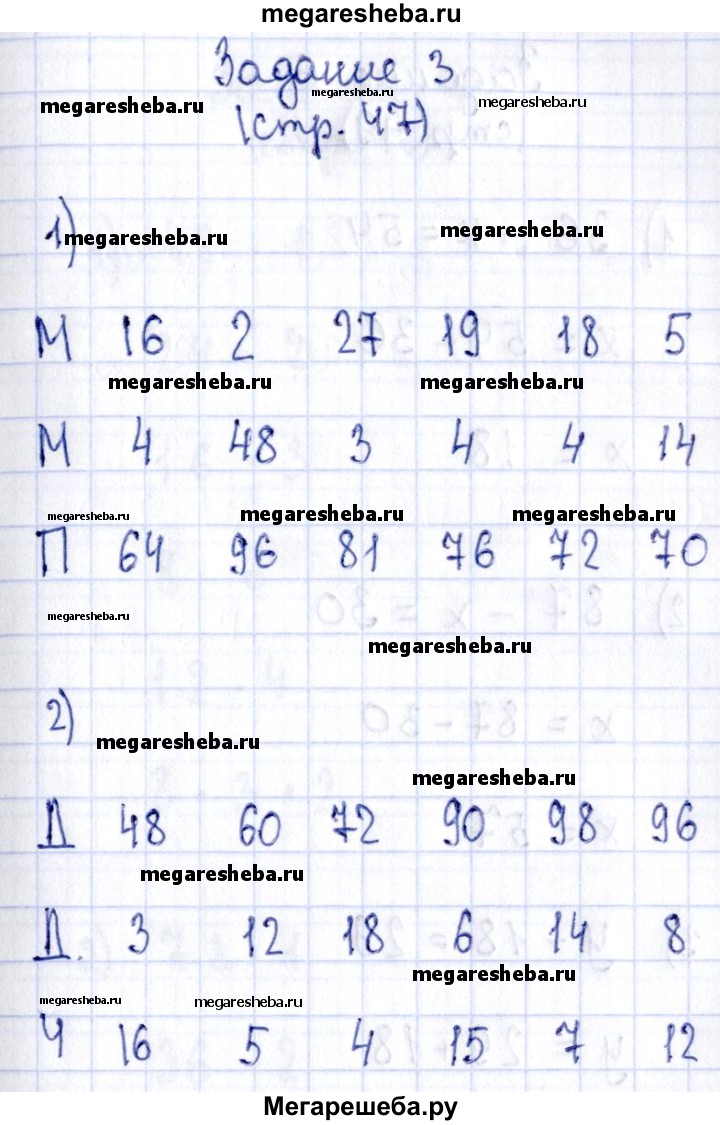 megaresheba.ru
Задание 3
megaresheba.ru megaresheba.ru megaresheba.ru
(стр. 47)
1)
megaresheba.ru megaresheba.ru
М 16 2 27 19 18 5
megaresheba.ru megaresheba.ru
М 4 48 3 4 4 14
megaresheba.ru megaresheba.ru megaresheba.ru
П 64 96 81 76 72 70
megaresheba.ru
megaresheba.ru
2)
megaresheba.ru
megaresheba.ru
Д 48 60 72 90 98 96
megaresheba.ru
Д. 3 12 18 6 14 8
megaresheba.ru
megaresheba.ru megaresheba.ru
Ч 16 5 4 15 7 12
Мегарешеба.ру